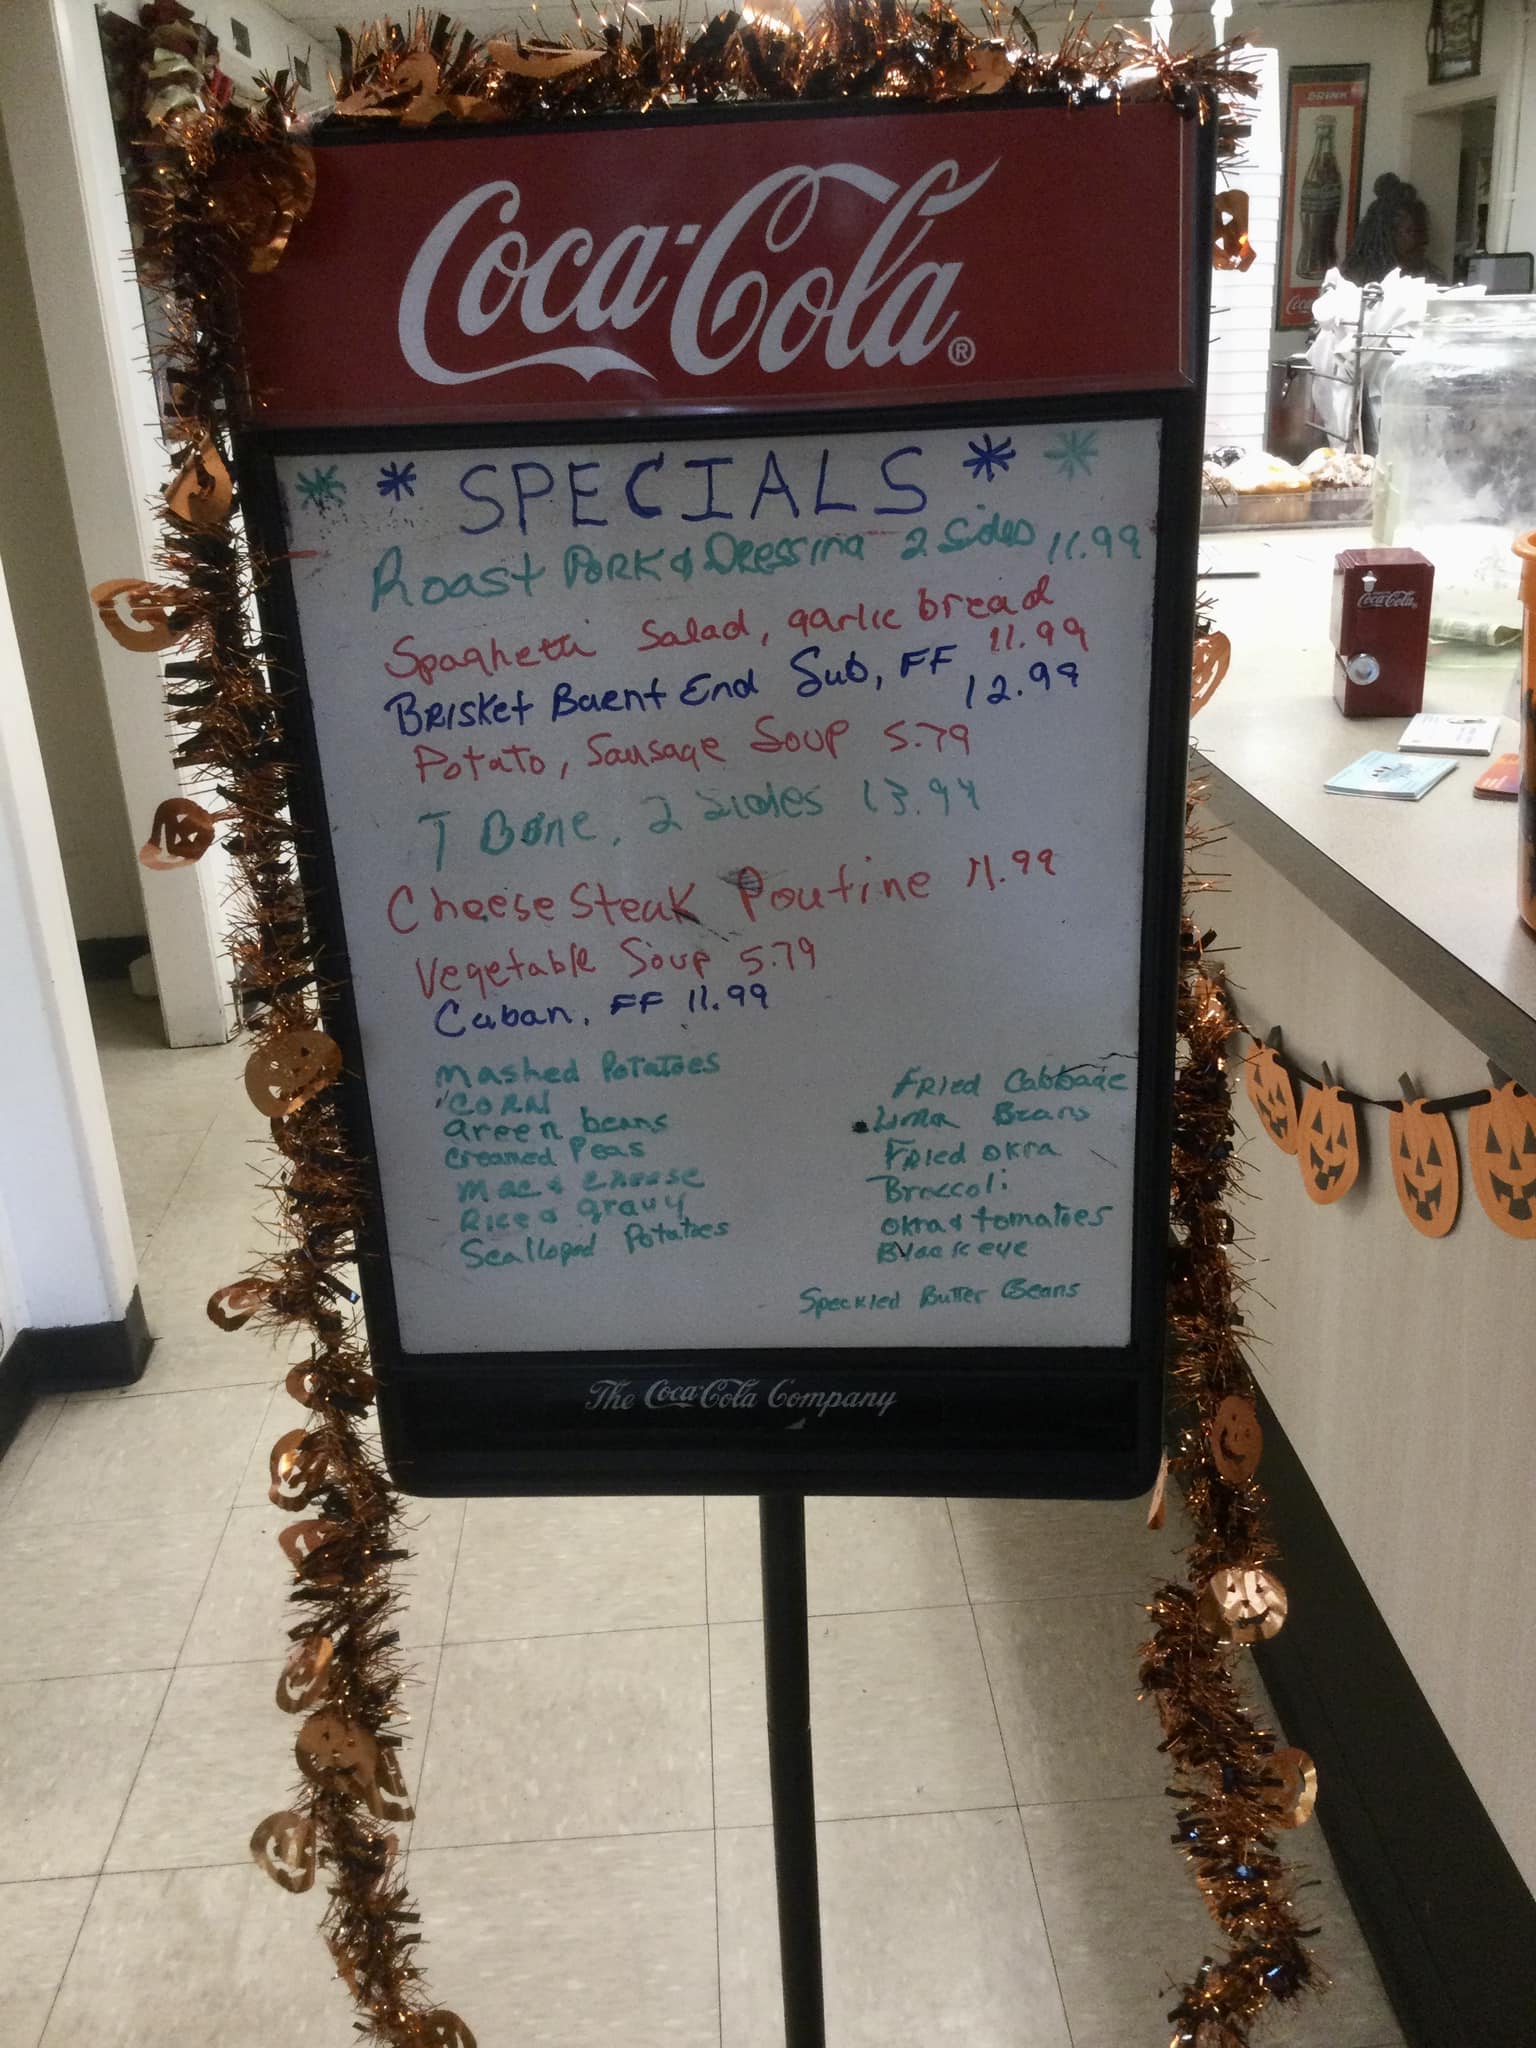 DRINK
Coca-Cola®
* * SPECIALS * *
Roast Pork & Dressing 2 Sides 11.99
Spaghetti Salad, garlic bread
11.99
Brisket Burnt End Sub, FF
12.99
Potato, Sausage Soup 5.79
T Bone, 2 Sides 13.99
Cheese Steak Poutine 11.99
Vegetable Soup 5.79
Cuban, FF 11.99
Mashed Potatoes
CORN
Green beans
Creamed Peas
Mac & Cheese
Rice & gravy
Scalloped Potatoes
Fried Cabbage
Lima Beans
Fried okra
Broccoli
Okra & tomatoes
Blackeye
Speckled Butter Beans
The Coca-Cola Company
Coca-Cola